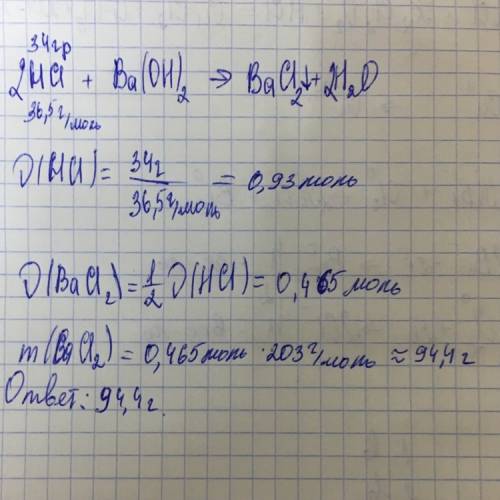 34гр
2HCl + Ba(OH)₂ → BaCl₂↓ + 2H₂O
36,5 г/моль
ν(HCl) = 34г / 36,5 г/моль = 0,93 моль
ν(BaCl₂) = 1/2 ν(HCl) = 0,465 моль
m(BaCl₂) = 0,465 моль · 203 г/моль ≈ 94,4 г
Ответ: 94,4 г.